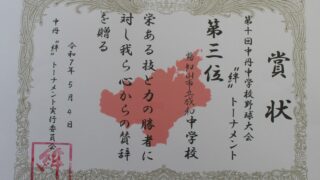 賞状
第十回中丹中学校野球大会
“絆”トーナメント
第三位
福知山市立成和中学校
栄ある技と力の勝者に
対し我ら心からの賛辞
を贈る
令和7年5月4日
中丹“絆”トーナメント実行委員会
絆